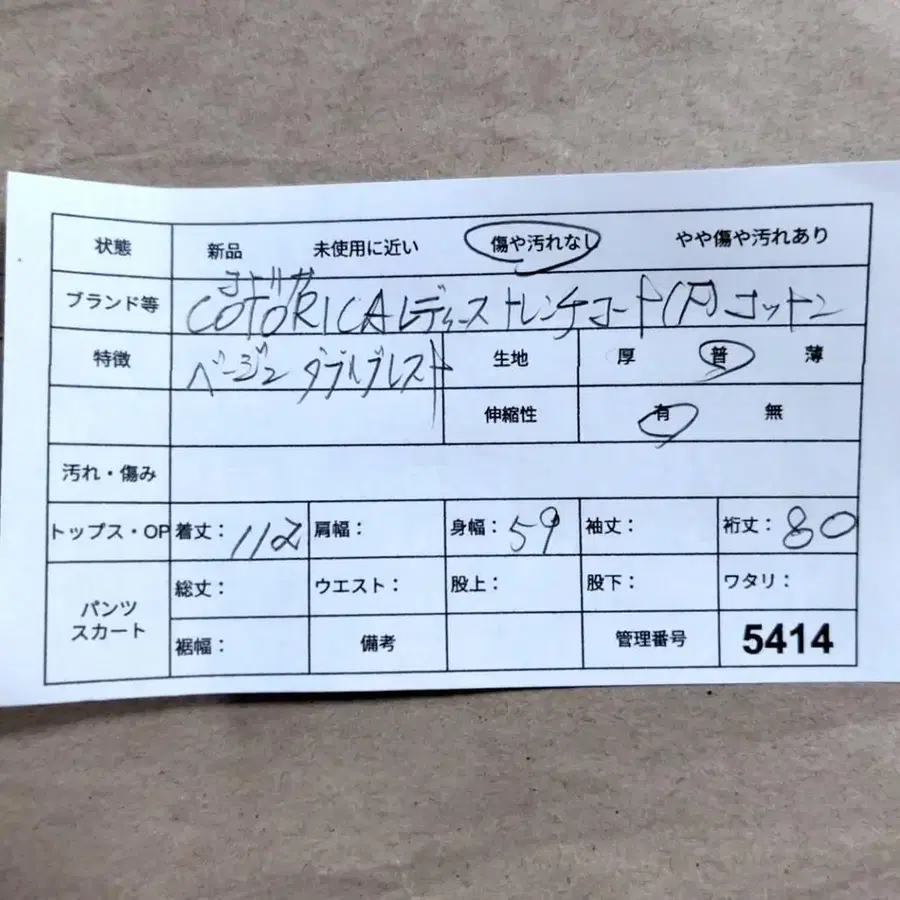 状態 新品 未使用に近い 傷や汚れなし やや傷や汚れあり
コトリカ
ブランド等 COTORICA レディース トレンチコート コットン
特徴 ベージュ ダブルブレスト 生地 厚 普 薄
伸縮性 有 無
汚れ・傷み
トップス・OP 着丈: 112 肩幅: 身幅: 59 袖丈: 裄丈: 80
パンツ スカート 総丈: ウエスト: 股上: 股下: ワタリ:
裾幅: 備考 管理番号 5414